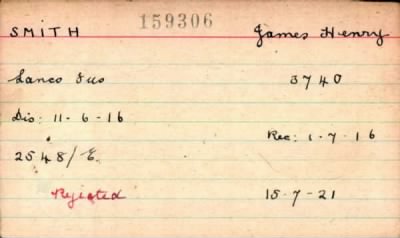 SMITH 159306 James Henry
Lanco Fus 3740
Dis: 11-6-16
Rec: 1-7-16
2548/E.
Rejected 15-7-21